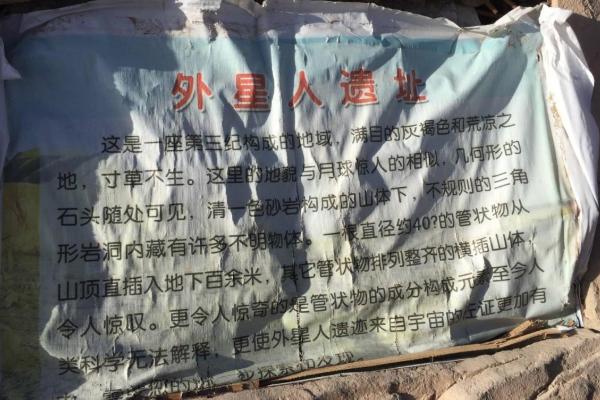 外星人遗址
这是一座第三纪构成的地域，满目的灰褐色和荒凉之
地，寸草不生。这里的地貌与月球惊人的相似，几何形的
石头随处可见，清一色砂岩构成的山体下，不规则的三角
形岩洞内藏有许多不明物体。一根直径约40?的管状物从
山顶直插入地下百余米，其它管状物排列整齐的横插山体，
令人惊叹。更令人惊奇的是管状物的成分构成元素至今人
类科学无法解释，更使外星人遗迹来自宇宙的左证更加有
探索和发现